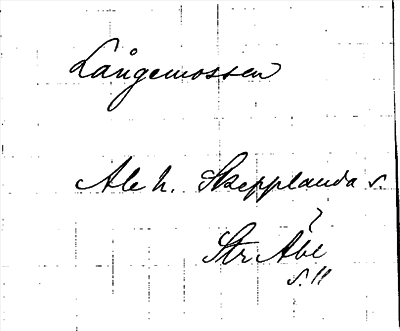 Långemossen
Ale h. Skepplanda s.
Str Abl
s. 11